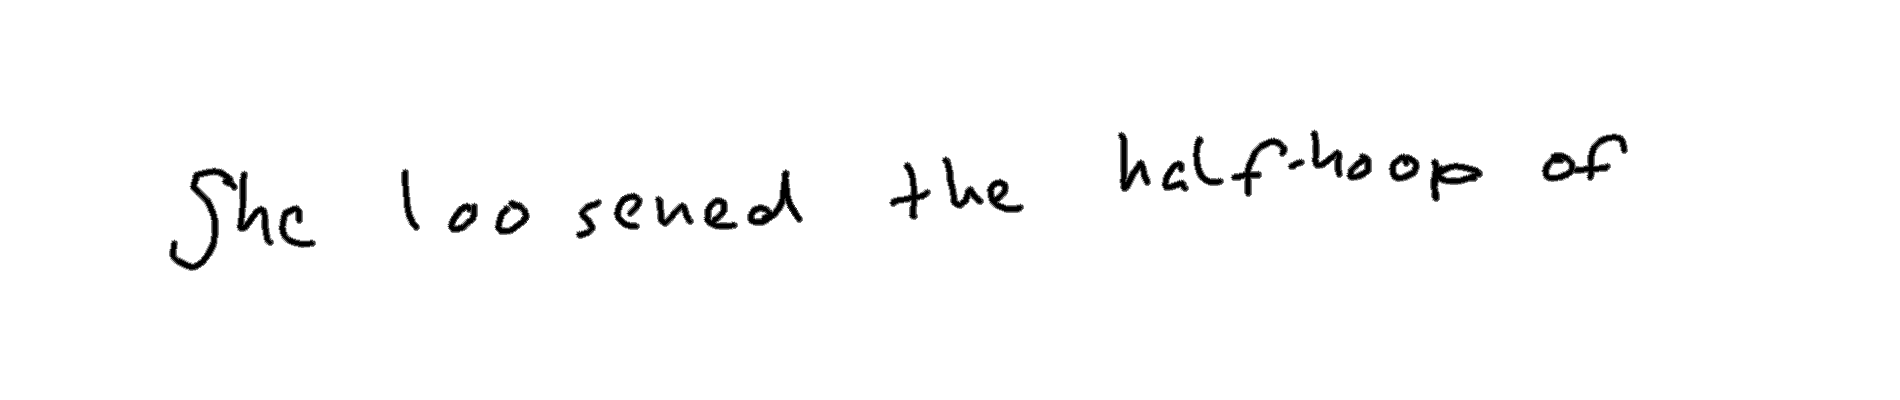 She loosened the half-hoop of